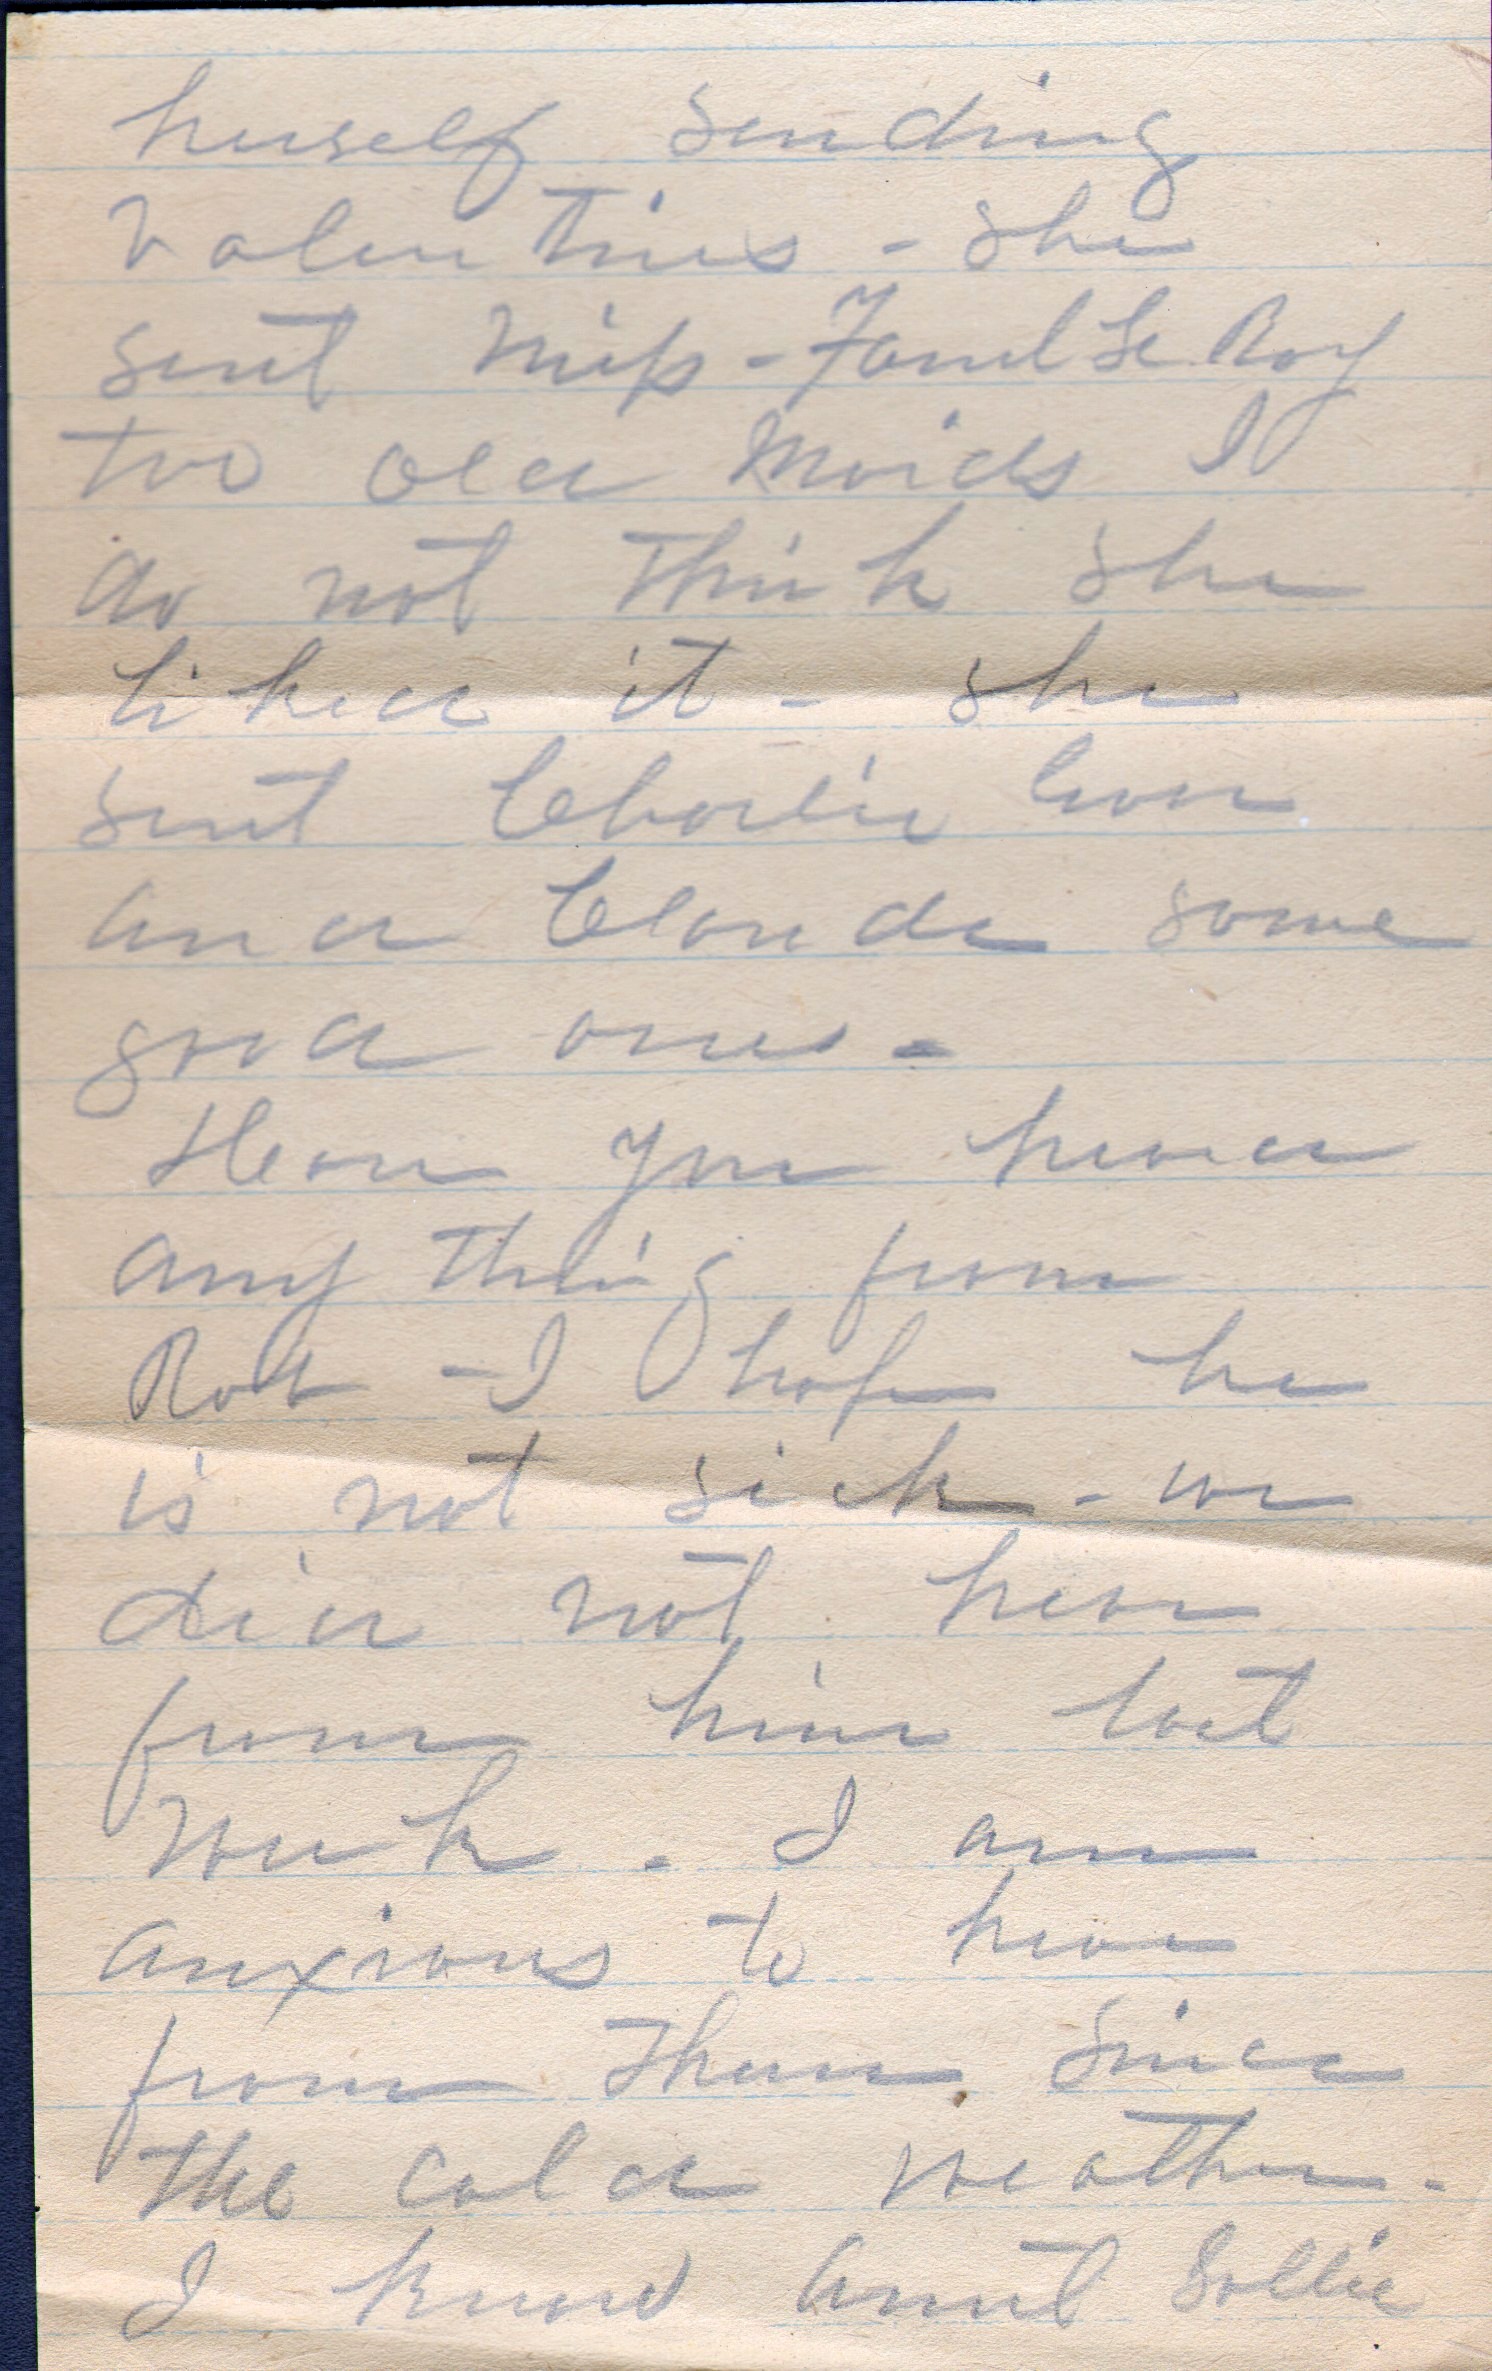 herself sending
valentines - she
sent Miss - Le Roy
two old maids I
do not think she
liked it - she
sent Charlie
and Claude some
good ones -
Have you heard
any thing from
Rob - I hope he
is not sick - we
did not hear
from him last
week. I am
anxious to hear
from them since
the cold weather -
I know Aunt Sallie